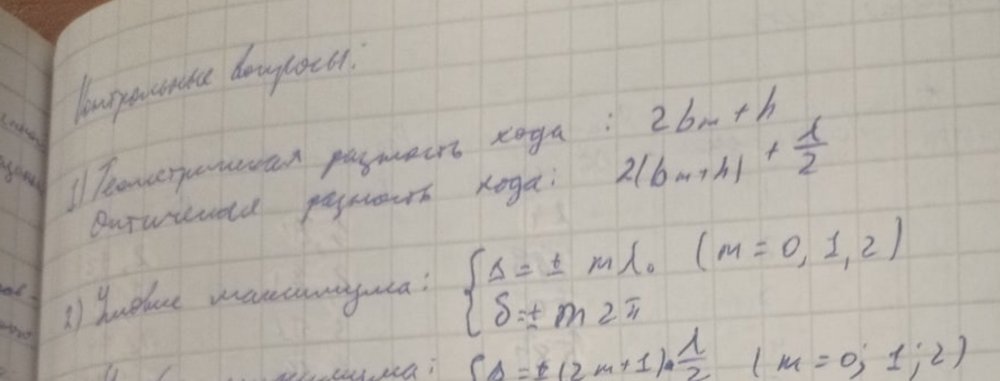 Контрольные вопросы:
1) Геометрическая разность хода : 2bm + h
Оптическая разность хода: 2(bm+h) + λ/2
2) Условие максимума: { Δ = ± mλ₀ (m = 0, 1, 2)
δ = ± m 2π
максимума: { Δ = ± (2m+1)·λ/2 (m = 0; 1; 2)